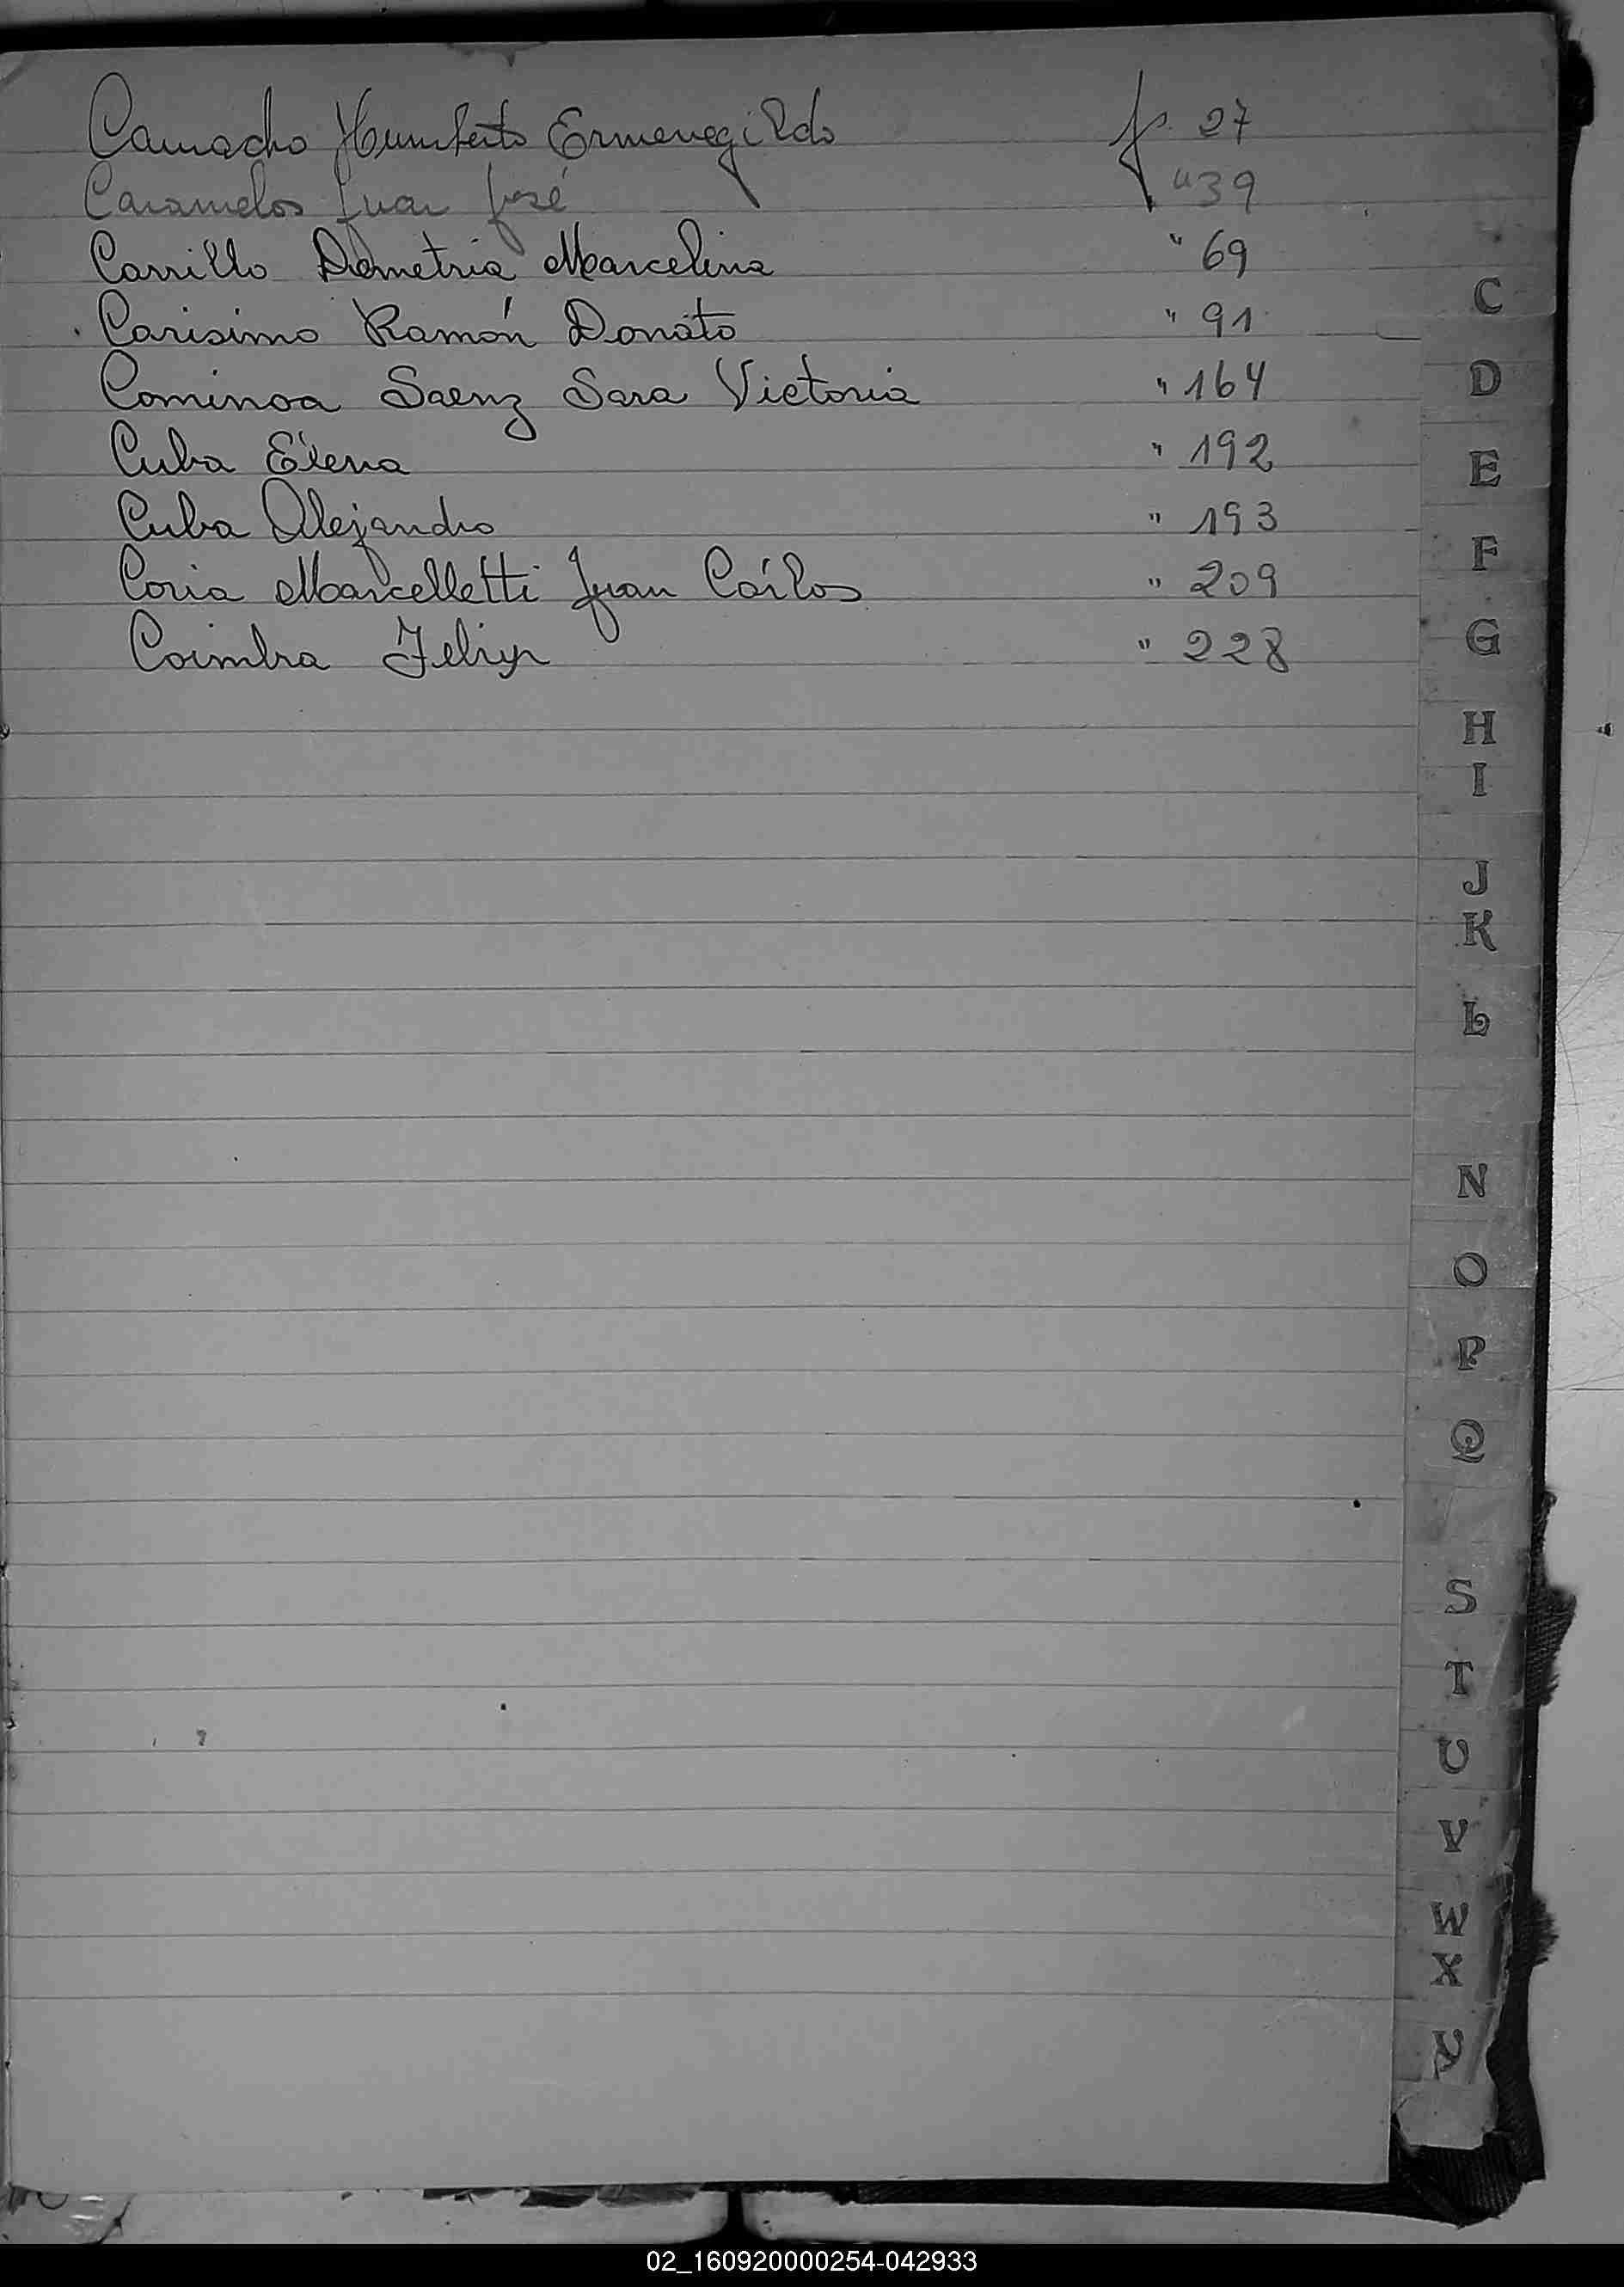 Camacho Humberto Ermenegildo f. 27
Caramelos Juan José " 39
Carrillo Demetria Marcelina " 69
Carisimo Ramón Donato " 91
Cominoa Saenz Sara Victoria " 164
Cuba Elena " 192
Cuba Alejandro " 193
Coria Marcelletti Juan Cárlos " 209
Coimbra " 228
C
D
E
F
G
H
I
J
K
L
N
O
P
Q
S
T
U
V
W
X
Y
02_160920000254-042933